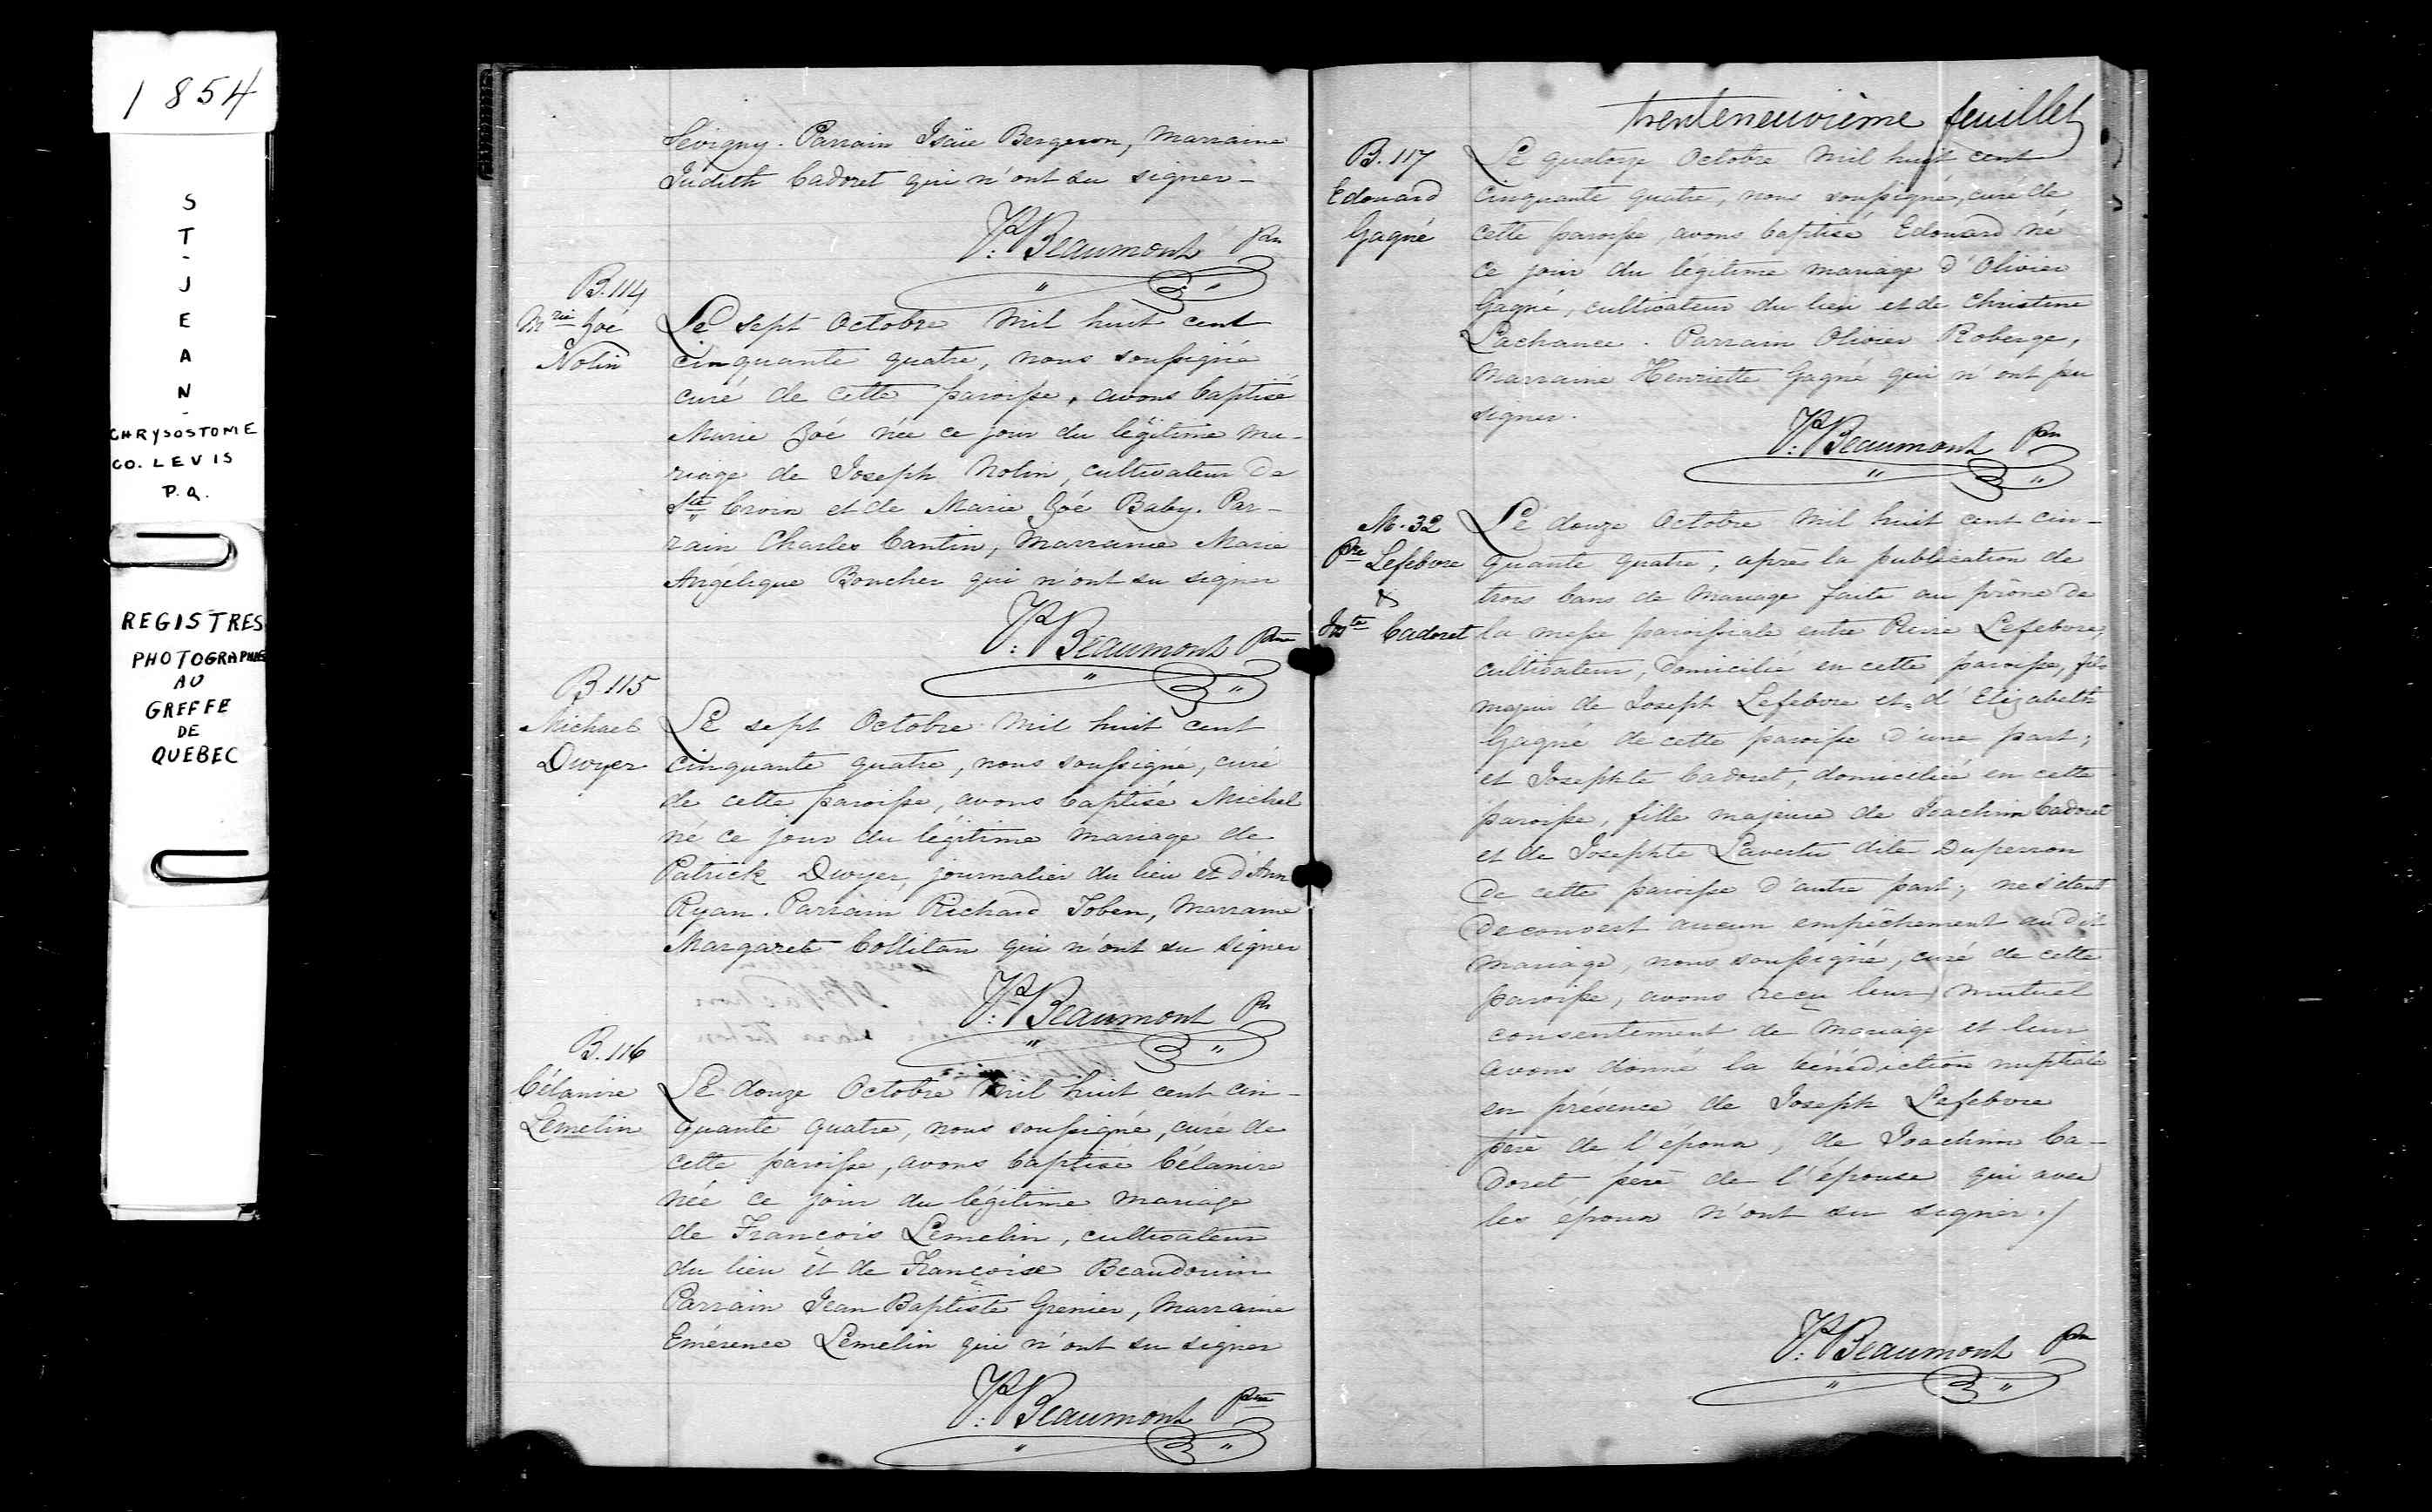 1854
ST-JEAN-
CHRYSOSTOME
CO. LEVIS
P.Q.
REGISTRES
PHOTOGRAPHIÉS
AU
GREFFE
DE
QUEBEC
Sévigny. Parrain Isaïe Bergeron, Marraine
Judith Cadoret qui n'ont su signer -
Beaumont Ptre
B. 114
Mrie Zoé
Nolin
Le sept Octobre Mil huit cent
cinquante quatre, nous soussigné
curé de cette paroisse, avons baptisé
Marie Zoé née ce jour du légitime ma-
riage de Joseph Nolin, cultivateur de
Ste Croix et de Marie Zoé Baby. Par-
rain Charles Cantin, Marraine Marie
Angélique Boucher qui n'ont su signer
Beaumont Ptre
B. 115
Michael
Dwyer
Le sept Octobre Mil huit cent
cinquante quatre, nous soussigné, curé
de cette paroisse, avons baptisé Michel
né ce jour du légitime mariage de
Patrick Dwyer, journalier du lieu et d'Ann
Ryan. Parrain Richard Toben, Marraine
Margaret Collitan qui n'ont su signer
Beaumont Ptr
B. 116
Célanire
Lemelin
Le douze Octobre Mil huit cent cin-
quante quatre, nous soussigné, curé de
cette paroisse, avons baptisé Célanire
née ce jour du légitime mariage
de François Lemelin, cultivateur
du lieu et de Françoise Beaudouin
Parrain Jean Baptiste Grenier, Marraine
Emérence Lemelin qui n'ont su signer
Beaumont Ptre
trenteneuvième feuillet
B. 117
Edouard
Gagné
Le quatorze Octobre Mil huit cent
cinquante quatre, nous soussigné, curé de
cette paroisse, avons baptisé Edouard né
ce jour du légitime mariage d'Olivier
Gagné, cultivateur du lieu et de Christine
Lachance. Parrain Olivier Roberge,
Marraine Henriette Gagné qui n'ont pu
signer.
Beaumont Ptre
M. 32
Pre Lefebvre
&
Jos.te Cadoret
Le douze Octobre Mil huit cent cin-
quante quatre, après la publication de
trois bans de Mariage faite au prône de
la messe paroissiale entre Pierre Lefebvre,
cultivateur, domicilié en cette paroisse, fils
majeur de Joseph Lefebvre et d'Elizabeth
Gagné de cette paroisse d'une part;
et Josephte Cadoret, domiciliée en cette
paroisse, fille majeure de Joachim Cadoret
et de Josephte Lavertu dite Duperron
de cette paroisse d'autre part; ne s'étant
découvert aucun empêchement au dit
Mariage, nous soussigné, curé de cette
paroisse, avons reçu leur mutuel
consentement de Mariage et leur
avons donné la bénédiction nuptiale
en présence de Joseph Lefebvre
père de l'époux, de Joachim Ca-
doret père de l'épouse qui avec
les époux n'ont su signer./
Beaumont Ptre